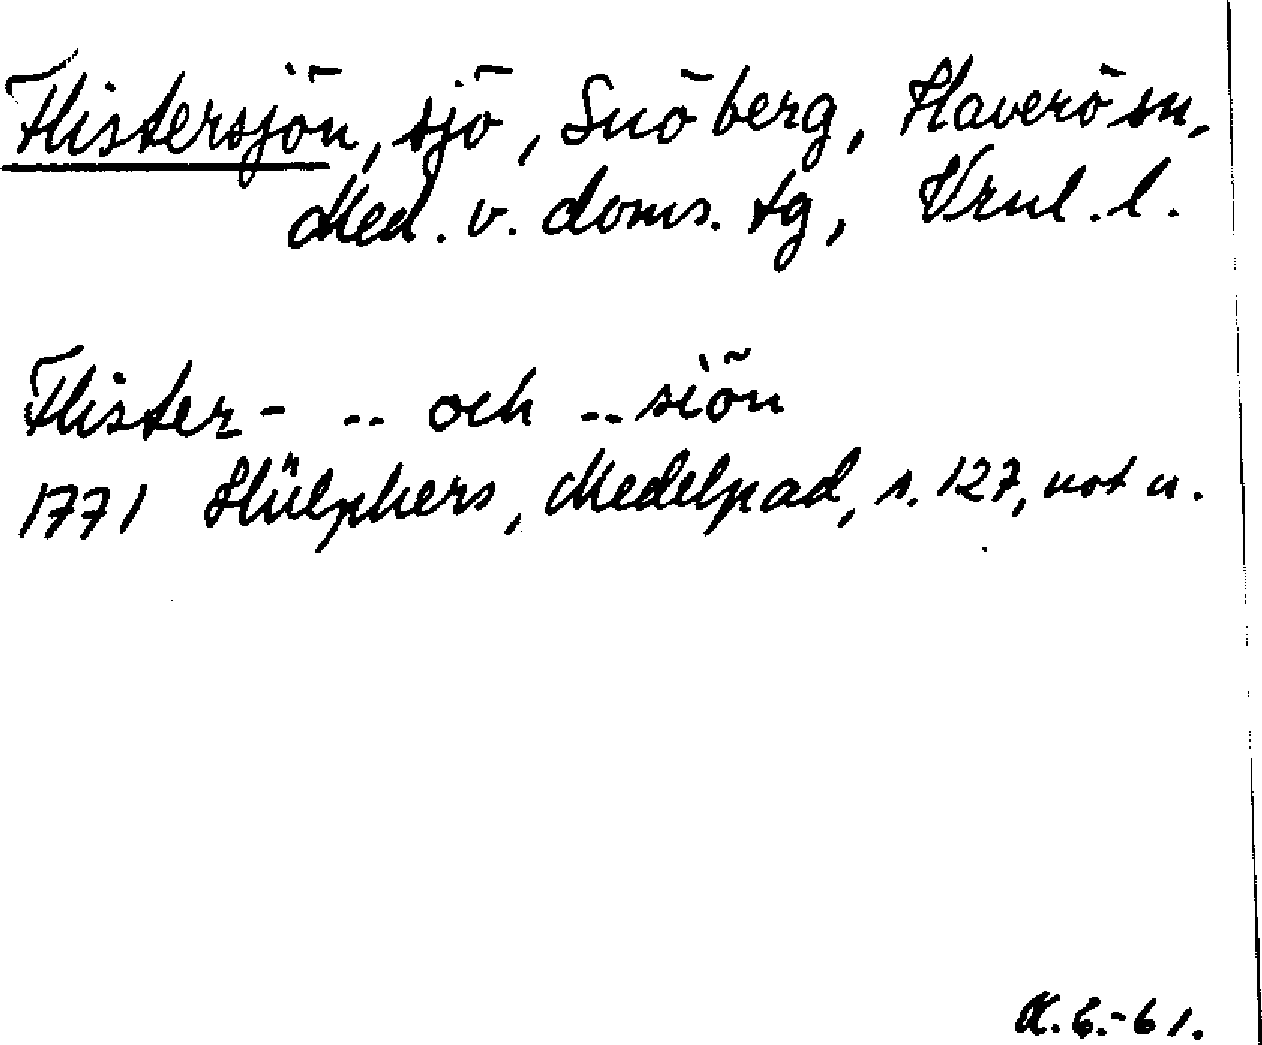 Flistersjön, sjö, Snöberg, Haverö sn,
Med. v. doms. tg, Vrnl. l.
Flister- .. och .. siön
1771 Hülphers, Medelpad, s. 127, not u.
K.G.-61.